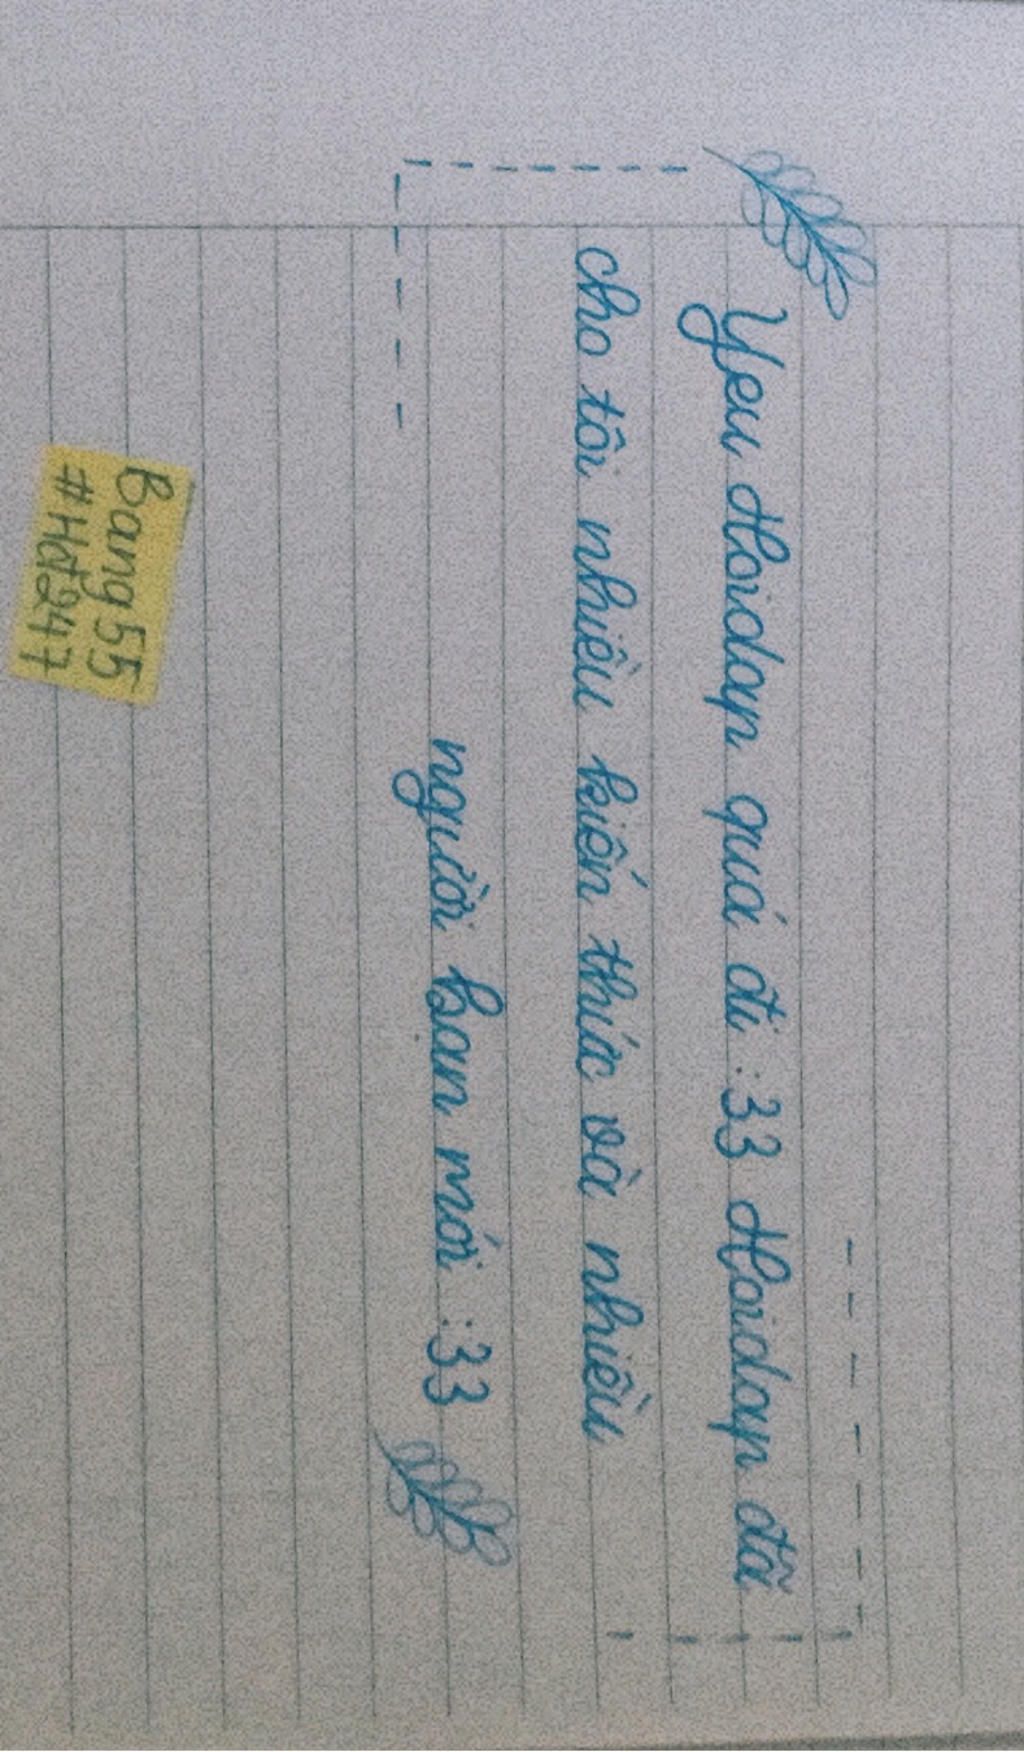 Yêu Hoidap quá đi :33 Hoidap đã
cho tôi nhiều kiến thức và nhiều
người bạn mới :33
Bang55
#Hd247